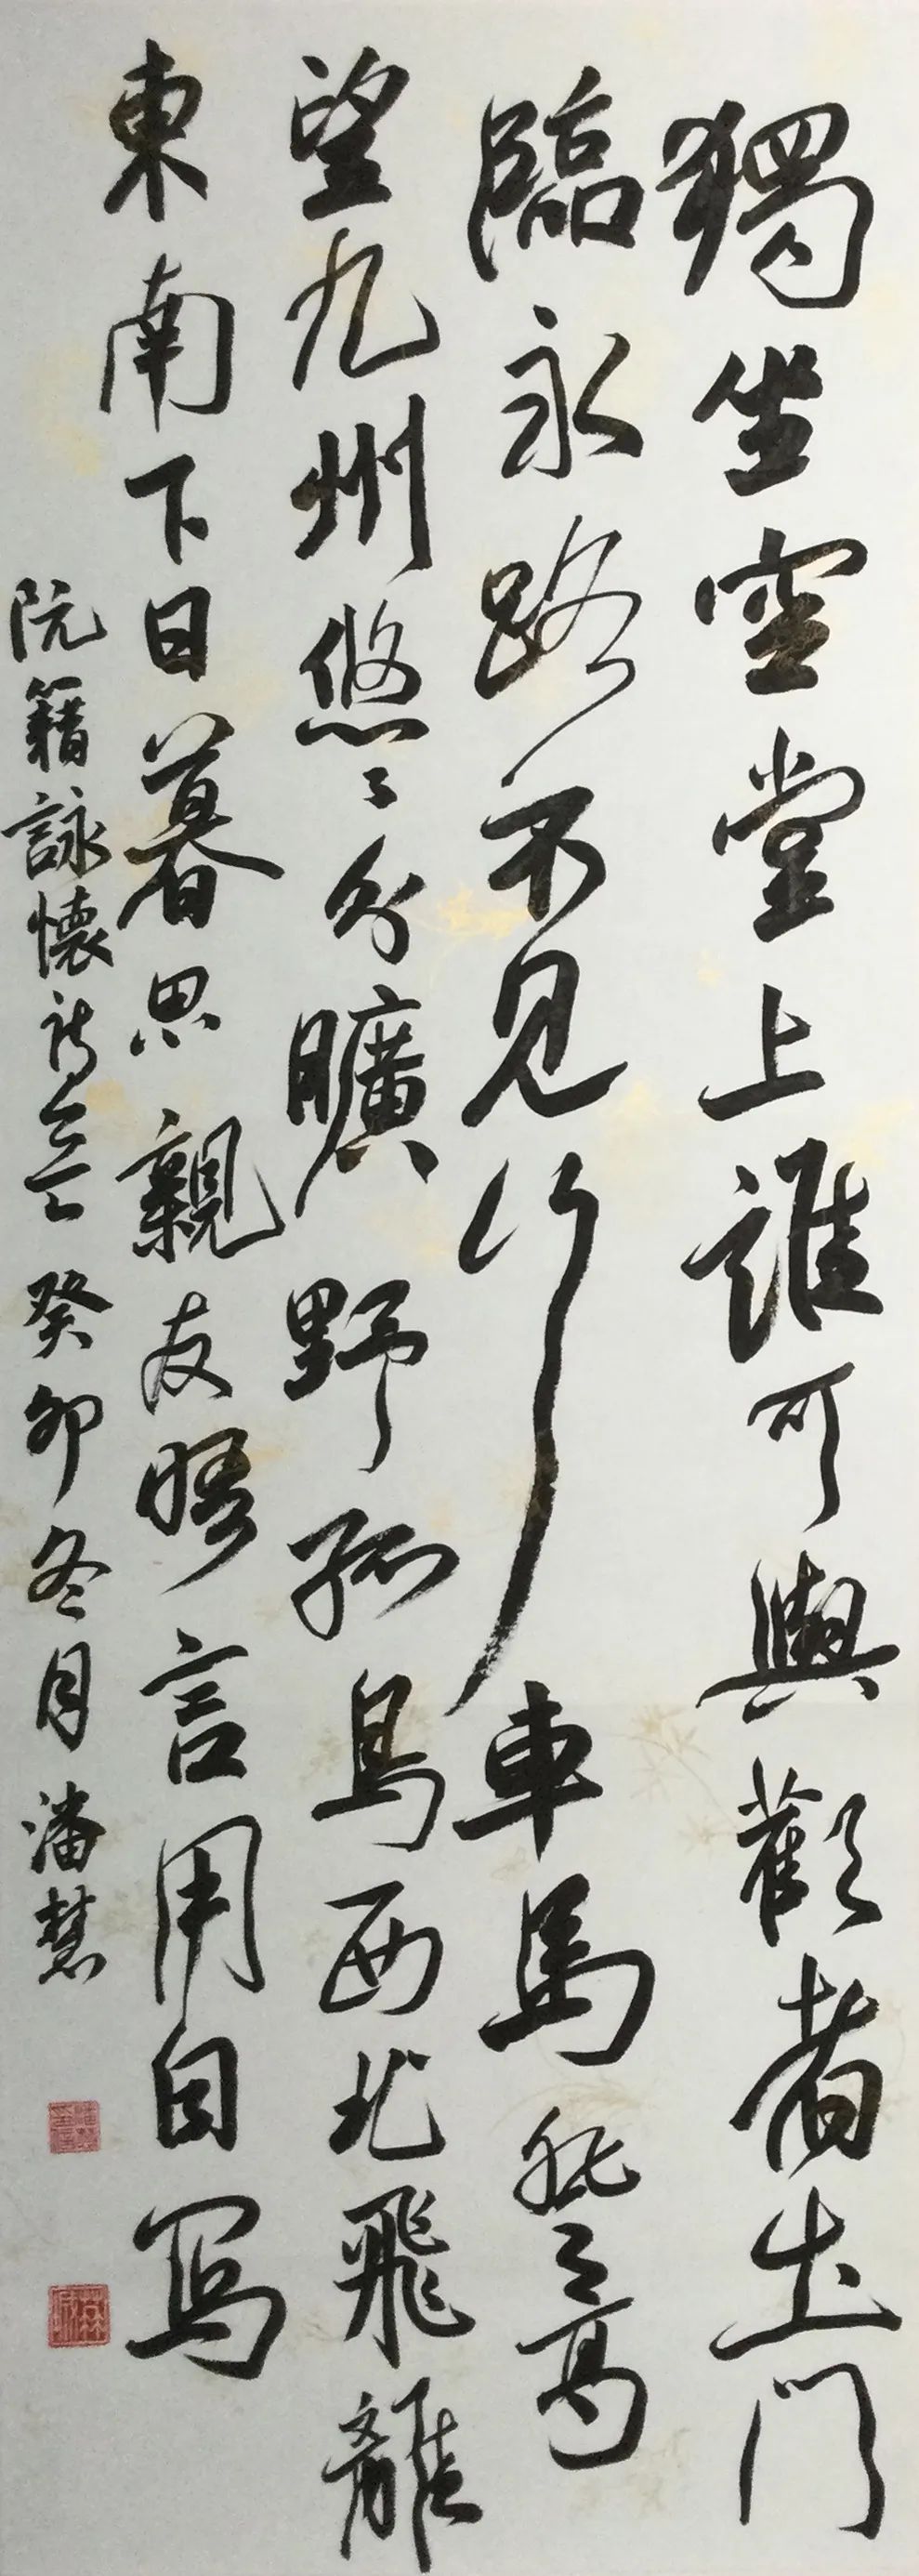 獨坐空堂上誰可與歡者出門
臨永路不見行車馬登高
望九州悠々分曠野孤鳥西北飛離
東南下日暮思親友晤言用自寫
阮籍詠懷詩 癸卯冬月潘慧